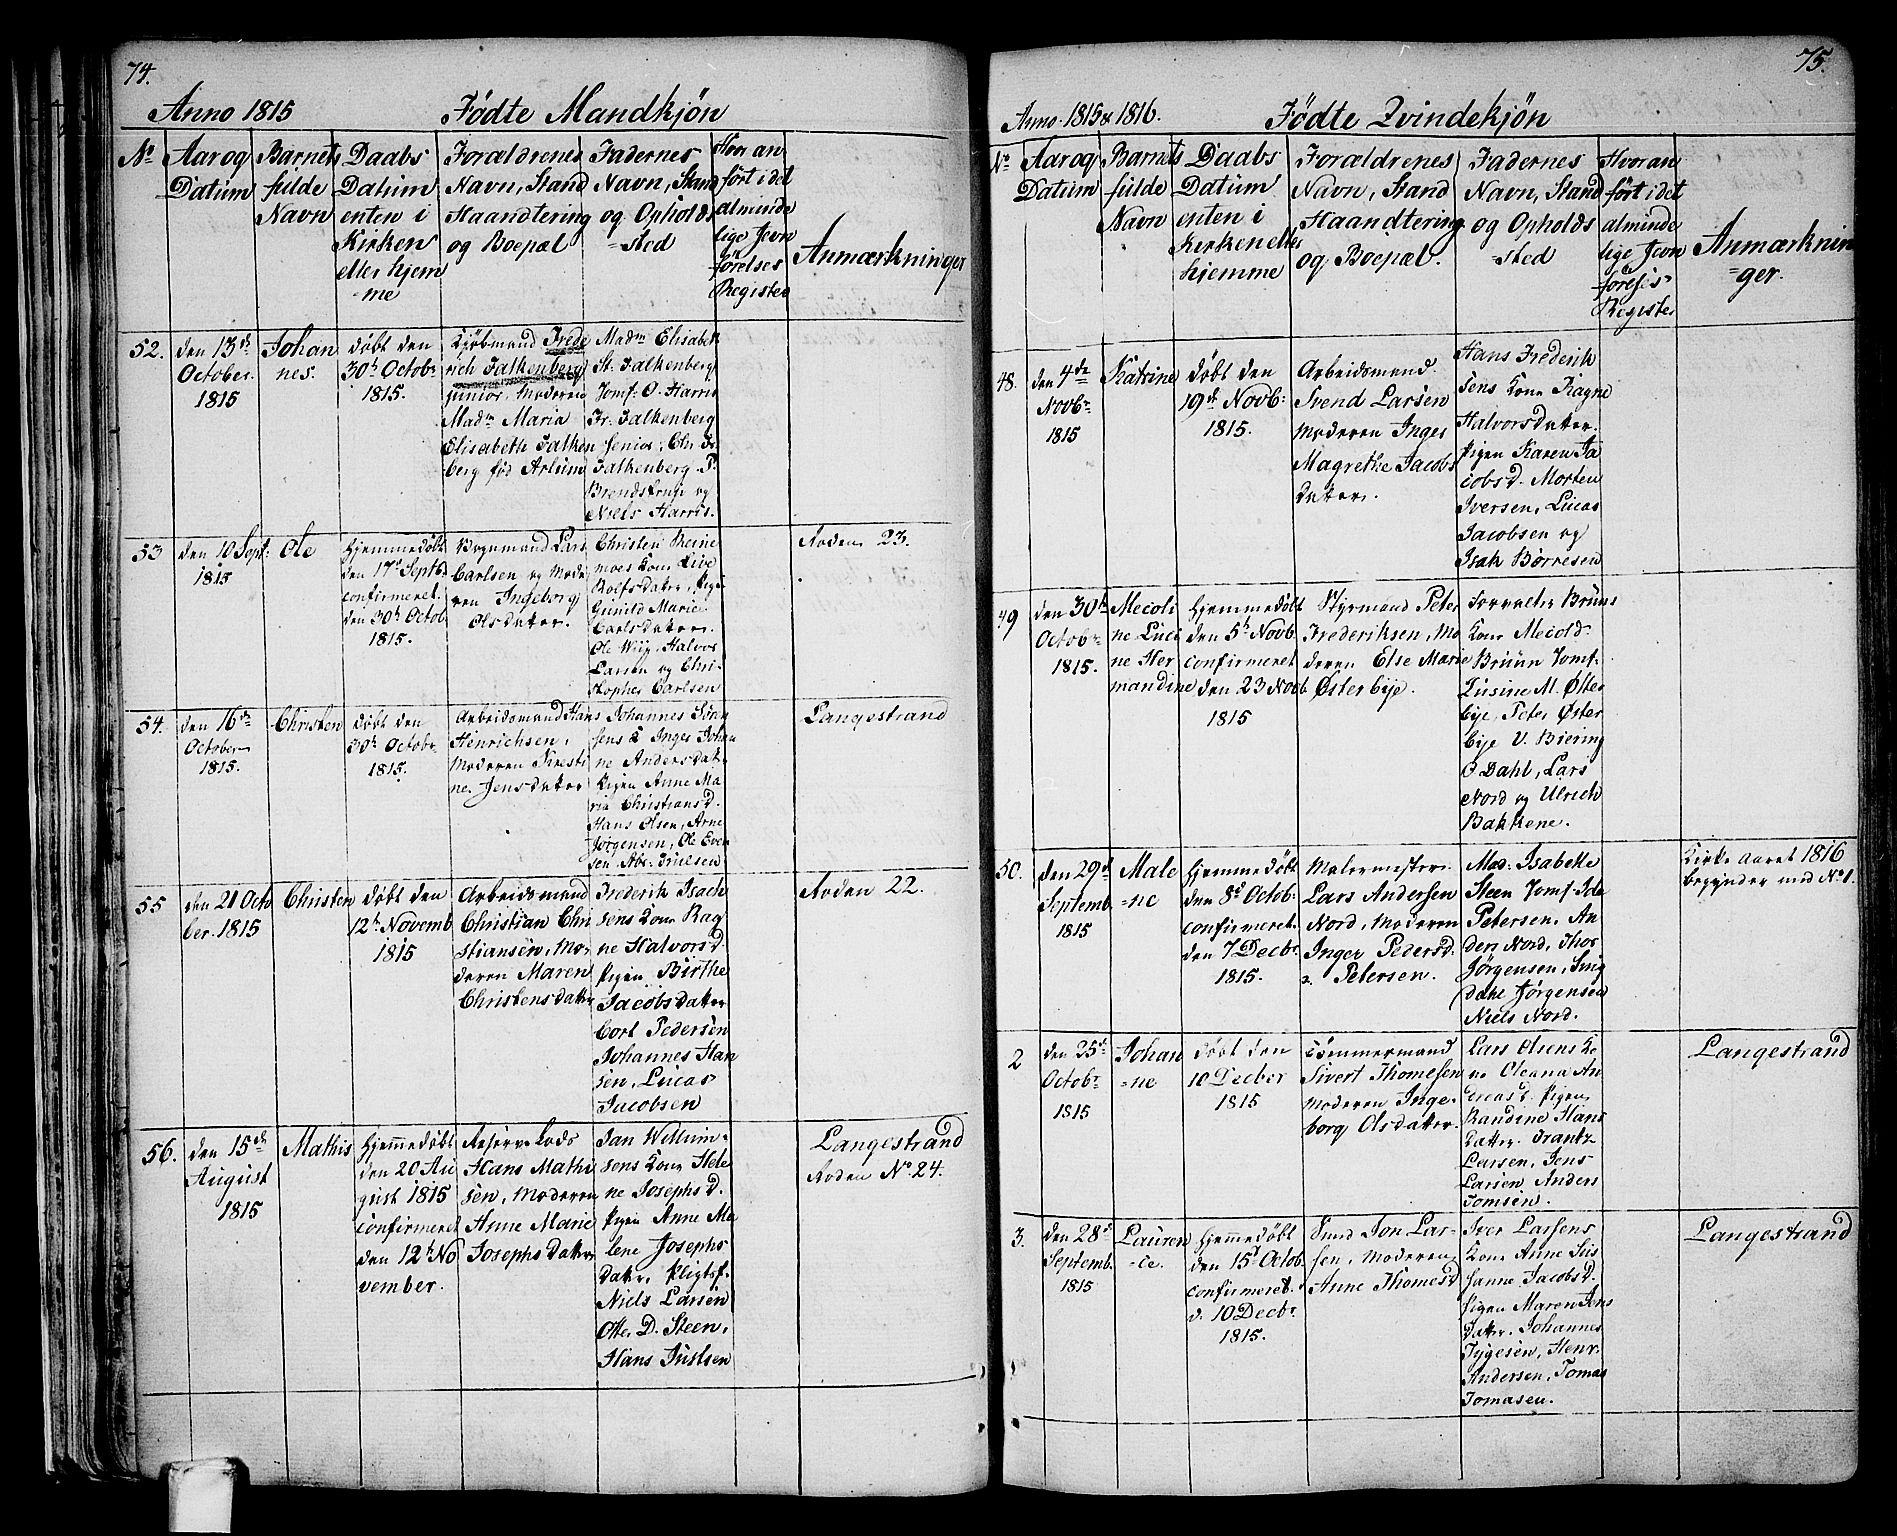 74.
Anno 1815 Fødte Mandkjøn
No
Aar og
Datum
Barnets
fulde
Navn
Daabs
Datum
enten i
Kirken
eller hjem
=me
Forældrenes
Navn, Stand
Haandtering
og Boepæl
Fadernes
Navn, Stand
og Opholds
=sted
Hvor an
ført i det
alminde
lige Jevn
førelses
Register
Anmærkninger
52.
den 13de
October.
1815
Johan
nes.
døbt den
30t Octobr
1815.
Kjøbmand Frede
rich Falkenberg
junior. Moderen
Madm Maria
Elisabeth Falken
berg fød Arlum
Madm Elisabeth
St. Falkenberg
Jomf: O. Harris
Fr. Falkenberg
senior, Chr. Fr.
Falkenberg. P.
Brendstrup og
Niels Harris.
53
den 10 Sept:
1815
Ole
Hjemmedøbt
den 17d Septb.
confirmeret.
den 30t Octob
1815.
Bryemand Lars
Carlsen og Mode
ren Ingeborg
Olsdatter.
Christen Reine
moes Kone Live
Rolfsdatter, Pige
Gunild Marie
Carlsdatter.
Ole Wiig, Halvor
Larsen og Chri-
stopher Carlsen
Roden 23.
54.
den 16de
October
1815.
Christen
døbt den
30t Octobr
1815.
Arbeidsmand Hans
Henrichsen,
Moderen Kirsti
ne Jensdatter
Johannes Søren
sens K Inger Johan
ne Andersdat.
Pigen Anne Ma
ria Christiansd.
Hans Olsen, Arne
Jørgensen, Ole Even
sen, Abr. Truelsen
Langestrand
55
den 21 Octo
ber. 1815
Christen
døbt den
12t Novemb
1815
Arbeidsmand
Christian Chri
stiansen, Mo-
deren Maren
Christensdatter
Frederik Isach
sens Kone Rag
ne Halvorsd.
Pigen Birthe
Jacobsdatter
Cort Pedersen
Johannes Han
sen, Lucas
Jacobsen
Roden 22.
56.
den 15de
August
1815
Mathis
Hjemmedøbt
den 20 Au
gust 1815
confirmeret
den 12t No
vember.
Reserve Lods
Hans Mathi
sen, Moderen
Anne Marie
Josephsdatter
Jan Willum-
sens Kone Hele
ne Josephsd.
Pigen Anne Ma
lene Josephs
datter, Pligtsf.
Niels Larsen
Otte D. Steen,
Hans Justsen
Langestrand
Roden No 24.
75.
Anno 1815 & 1816. Fødte Qvindekjøn
No
Aar og
Datum
Barnets
fulde
Navn
Daabs
Datum
enten i
Kirken eller
hjemme
Forældrenes
Navn, Stand
Haandtering
og Boepæl.
Fadernes
Navn, Stand
og Opholds
=sted
Hvor an
ført i det
alminde
lige Jevn
førelses
Register
Anmærknin
=ger.
48.
den 4de
Novbr
1815
Katrine
døbt den
19de Novb:
1815.
Arbeidsmand
Svend Larsen
Moderen Inger
Magrethe Jacobs
datter.
Hans Frederik
sens Kone Ragne
Halvorsdatter.
Pigen Karen Ja
cobsd. Morten
Iversen, Lucas
Jacobsen og
Isak Børresen
49
den 30t
Octobr
1815.
Mecoli
ne Luci
ne Her
mandine
Hjemmedøbt
den 5t Novb
confirmeret
den 23 Novb
1815
Styrmand Peter
Frederiksen, Mo
deren Else Marie
Østerbye.
Forvalter Bruuns
Kone Mecold.
Bruun Jomf.
Lusine M. Øster
bye, Peter Øster
bye V. Biering
O Dahl, Lars
Nord og Ulrich
Bakkene.
50.
den 29de
Septemb.
1815
Male
=ne
Hjemmedøbt
den 8d Octob:
confirmeret.
den 7 Decbr
1815.
Malermester
Lars Andersen
Nord, Moderen
Inger Pedersd.
Petersen.
Mad. Isabelle
Steen Jomf. Ida
Petersen. An
ders Nord, Thor
Jørgensen, Sing
dahl Jørgensen
Niels Nord.
Kirke aaret 1816
begynder med No 1.
2
den 25de
Octobr
1815
Johan
=ne
døbt den
10 Decber
1815
Tømmermand
Sivert Thomesen
Moderen Inge-
borg Olsdatter.
Lars Olsens Ko
ne Oleana An
dreasd. Pigen
Randine Hans
datter. Frantz
Larsen, Jens
Larsen Anders
Tomsen.
Langestrand
3.
den 28de
Septemb.
1815
Lauren
=ce.
Hjemmedøbt
den 15t Octob.
confirmeret.
d. 10 Decbr
1815.
Smed Jon Lar-
sen, Moderen
Anne Thomesd
Iver Larsens
Kone Anne Sus
sanne Jacobsd.
Pigen Maren Jens
datter. Johannes
Tygesen, Henr.
Andersen, Tomas
Tomasen.
Langestrand